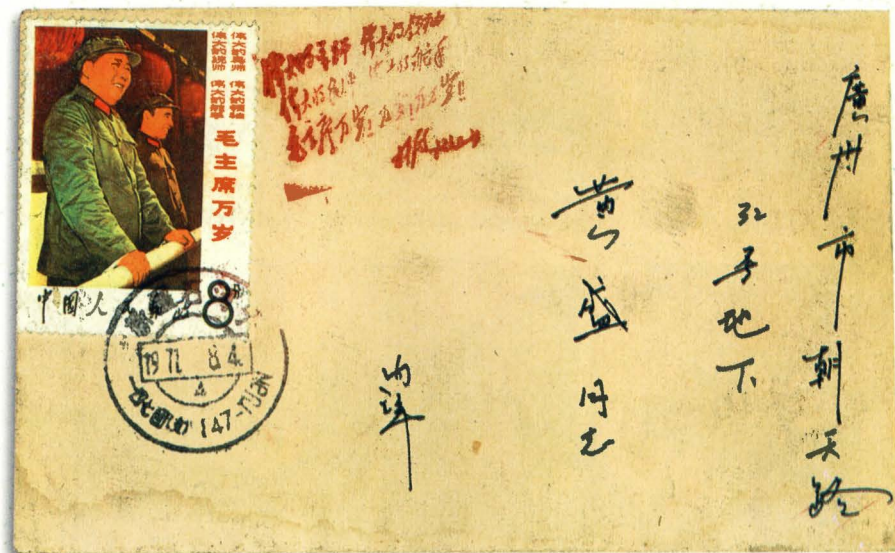 伟大的导师 伟大的领袖
伟大的统帅 伟大的舵手
毛主席万岁
中国人
8
伟大的导师 伟大的领袖
伟大的统帅 伟大的舵手
毛主席万岁!万岁!万万岁!!
林彪
1971 8 4
廣州市朝天路
32号地下
黄盛同志
内详